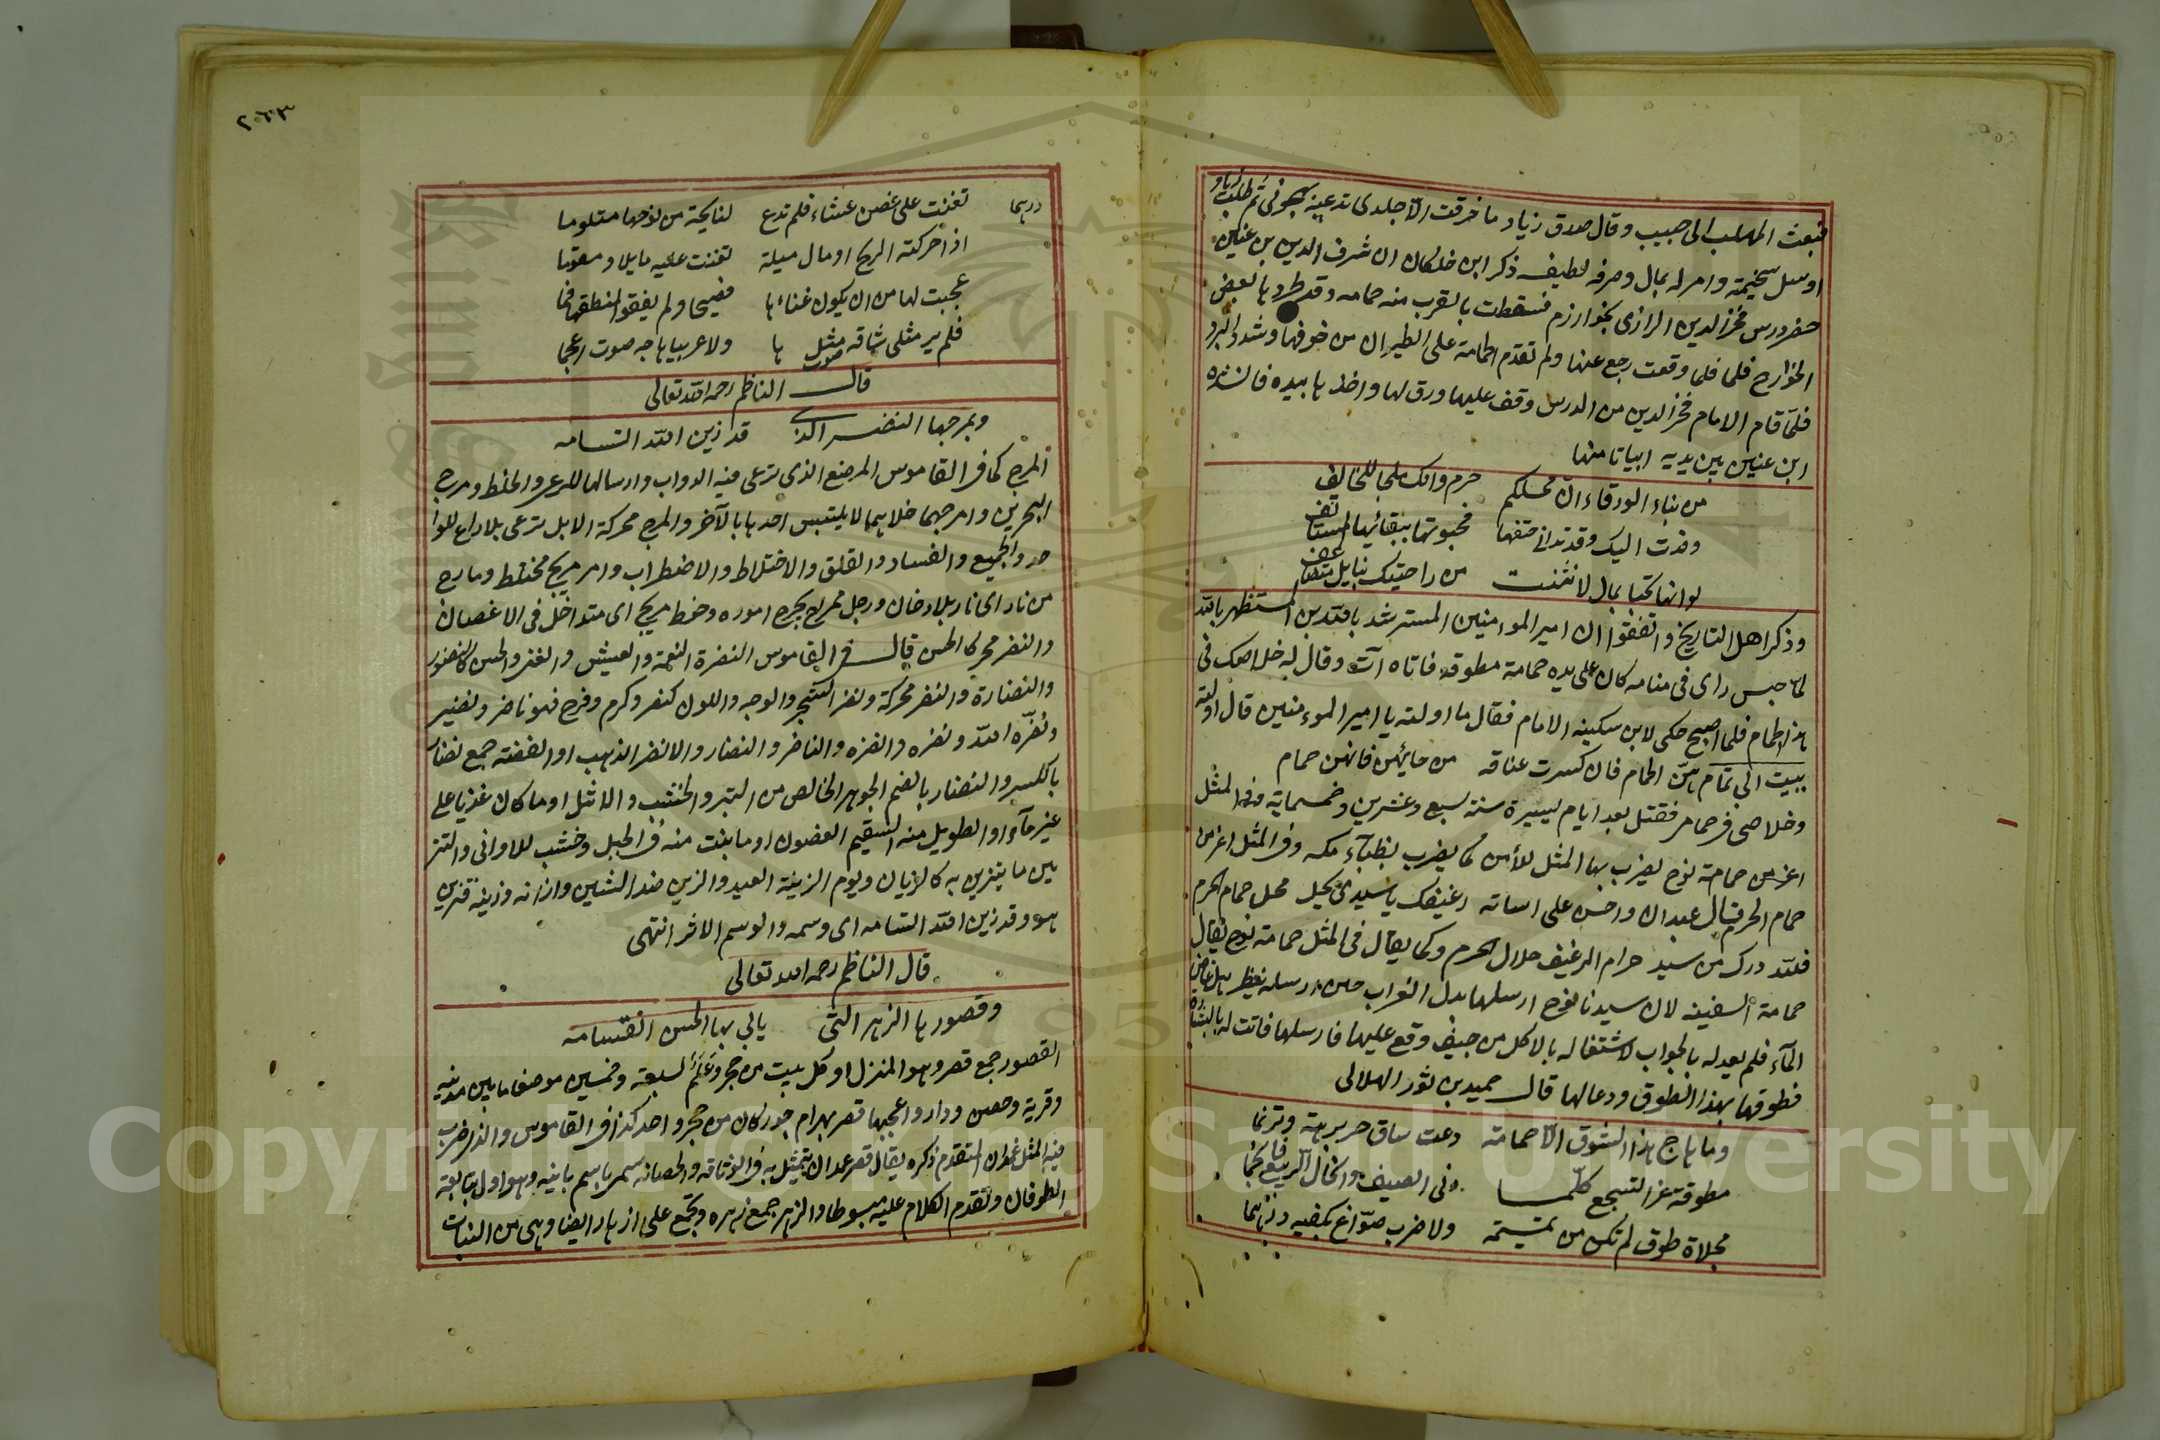 فبعث المهلب الى حبيب وقال صدق زياد ما خرقت الا جلدى تدعينه يهجونى ثم طلب زياد
وسل سخيمته وامر له بمال وصرفه لطيف ذكر ابن خلكان ان شرف الدين بن عنين
حضر درس فخر الدين الرازى بخوارزم فسقطت بالقرب منه حمامه وقد طردها بعض
الجوارح فلما وقعت رجع عنها ولم تقدر الحمامة على الطيران من خوفها وشدة البرد
فلما قام الامام فخر الدين من الدرس وقف عليها ورق لها واخذها بيده فانشده
ابن عنين بين يديه ابياتا منها
من نباء الورقاء ان محلكم حرم وانك ملجا للخائف
وفدت اليك وقد تدانى حتفها فحبوتها ببقائها المستانف
لو انها تحبا بمال لانثنت من راحتيك بنايل متضاعف
وذكر اهل التاريخ واتفقوا ان امير الموامنين المسترشد بالله بن المستظهر بالله
لما حبس راى فى منامه كان على يده حمامة مطوقه فاتاه آت وقال له خلاصك فى
هذا الحمام فلما اصبح حكى لابن سكينه الامام فقال ما اولته يا امير المومنين قال اولته
ببيت ابى تمام هن الحمام فان كسرت عيافة من حائهن فانهن حمام
وخلاصى فى حمامى فقتل بعد ايام يسيرة سنة سبع وعشرين وخمسماية وفى المثل
اعز من حمامة نوح يضرب بها المثل للأمن كما يضرب بظباء مكه وفى المثل اعز من
حمام الحرم قال عبدان واحسن على اساته رغيفك يا سيدى يحل محل حمام الحرم
فلله درك من سيد حرام الرغيف حلال الحرم وكما يقال فى المثل حمامة نوح يقال
حمامة السفينه لان سيدنا نوح ارسلها بدل الغراب حين ارسله ينظر هل غاض
الماء فلم يعد له بالجواب لاشتغاله بالاكل من جيف وقع عليها فارسلها فاتت له بالبشارة
فطوقها بهذا الطوق ودعا لها قال حميد بن ثور الهلالى
وما هاج هذا الشوق الا حمامة دعت ساق حر برهة وترنما
مطوقة غرا تسجع كلما دنى الصيف وانجال الربيع فانجما
محلاة طوق لم تكن من تميمة ولا ضرب صواغ بكفيه درهما
درهما
تغنت على غصن عشاء فلم تدع لنايحة من نوحها متلوما
اذا حركته الريح او مال ميلة تغنت عليه مايلا ومقوما
عجبت لها من ان يكون غناءها فصيحا ولم يفغر لمنطقها فما
فلم ير مثلى شاقه صوت مثلها ولا عربيا هاجه صوت اعجما
قال الناظم رحمه الله تعالى
وبمرجها النضر الذى قد زين الله التسامه
المرج كما فى القاموس المرضع الذى ترعى فيه الدواب وارسالها للرعى والخلط ومرج
البحرين وامرجهما خلاهما لا يلتبس احدهما بالآخر والمرج محركة الابل ترعى بلا راع للوا
حد والجميع والفساد والقلق والاختلاط والاضطراب وامر مريج مختلط ومارج
من نار اى نار بلا دخان ورجل ممراج يمرج اموره وخوط مريج اى متداخل فى الاغصان
والنضر محركا الحسن قال فى القاموس النضرة النعمة والعيش والغنى والحسن كالنضور
والنضارة والنضر محركة ونضر الشجر والوجه واللون كنصر وكرم وفرح فهو ناضر ونضير
ونضره الله ونضره وانضره والناضر والنضار والانضر الذهب او الفضة جمع نضار
بالكسر والنضار بالضم الجوهر الخالص من التبر والخشب والاثل او ما كان غذيا على
غير ماء او الطويل منه المستقيم الغصون او ما نبت منه فى الجبل وخشب للاوانى والتز
يين ما يتزين به كالازيان ويوم الزينة العيد والزين ضد الشين وازانه وزينه فتزين
هو وقد زين الله التسامه اى وسمه والوسم الاثر انتهى
قال الناظم رحمه الله تعالى
وقصورها الزهر التى يابى بها الحسن انقسامه
القصور جمع قصر وهو المنزل او كل بيت من حجر وعلم لسبعة وخمسين موضعا ما بين مدينه
وقرية وحصن ودار واعجبها قصر بهرام جور كان من حجر واحد كذا فى القاموس والذى ضرب
فيه المثل غمدان المتقدم ذكره يقال قصر غمدان يتمثل به فى الوثاقه والحصانه سمى باسم بانيه وهو اول بيت بعد
الطوفان وتقدم الكلام عليه مبسوطا والزهر جمع زهره ويجمع على ازهار ايضا وهى من النبات
٢٦٣
Copyright © King Saud University
1957